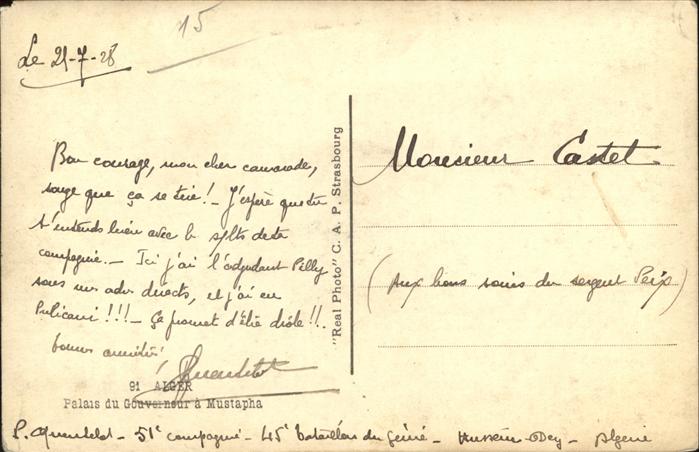 15
Le 21-7-28
Bon courage, mon cher camarade,
songe que ça se tire! — J'espère que tu
t'entends bien avec le de ta
compagnie. — Ici j'ai l'adjudant Pilly
sous mes directs, et j'ai eu
Pulicani !!! — Ça promet d'être drôle !!.
bonnes amitiés!
91 ALGER
Palais du Gouverneur à Mustapha
"Real Photo" C. A. P. Strasbourg
Monsieur Castet
(Aux bons soins du sergent
P. — 51e compagnie — 45e bataillon du Génie — Hussein-Dey — Algérie